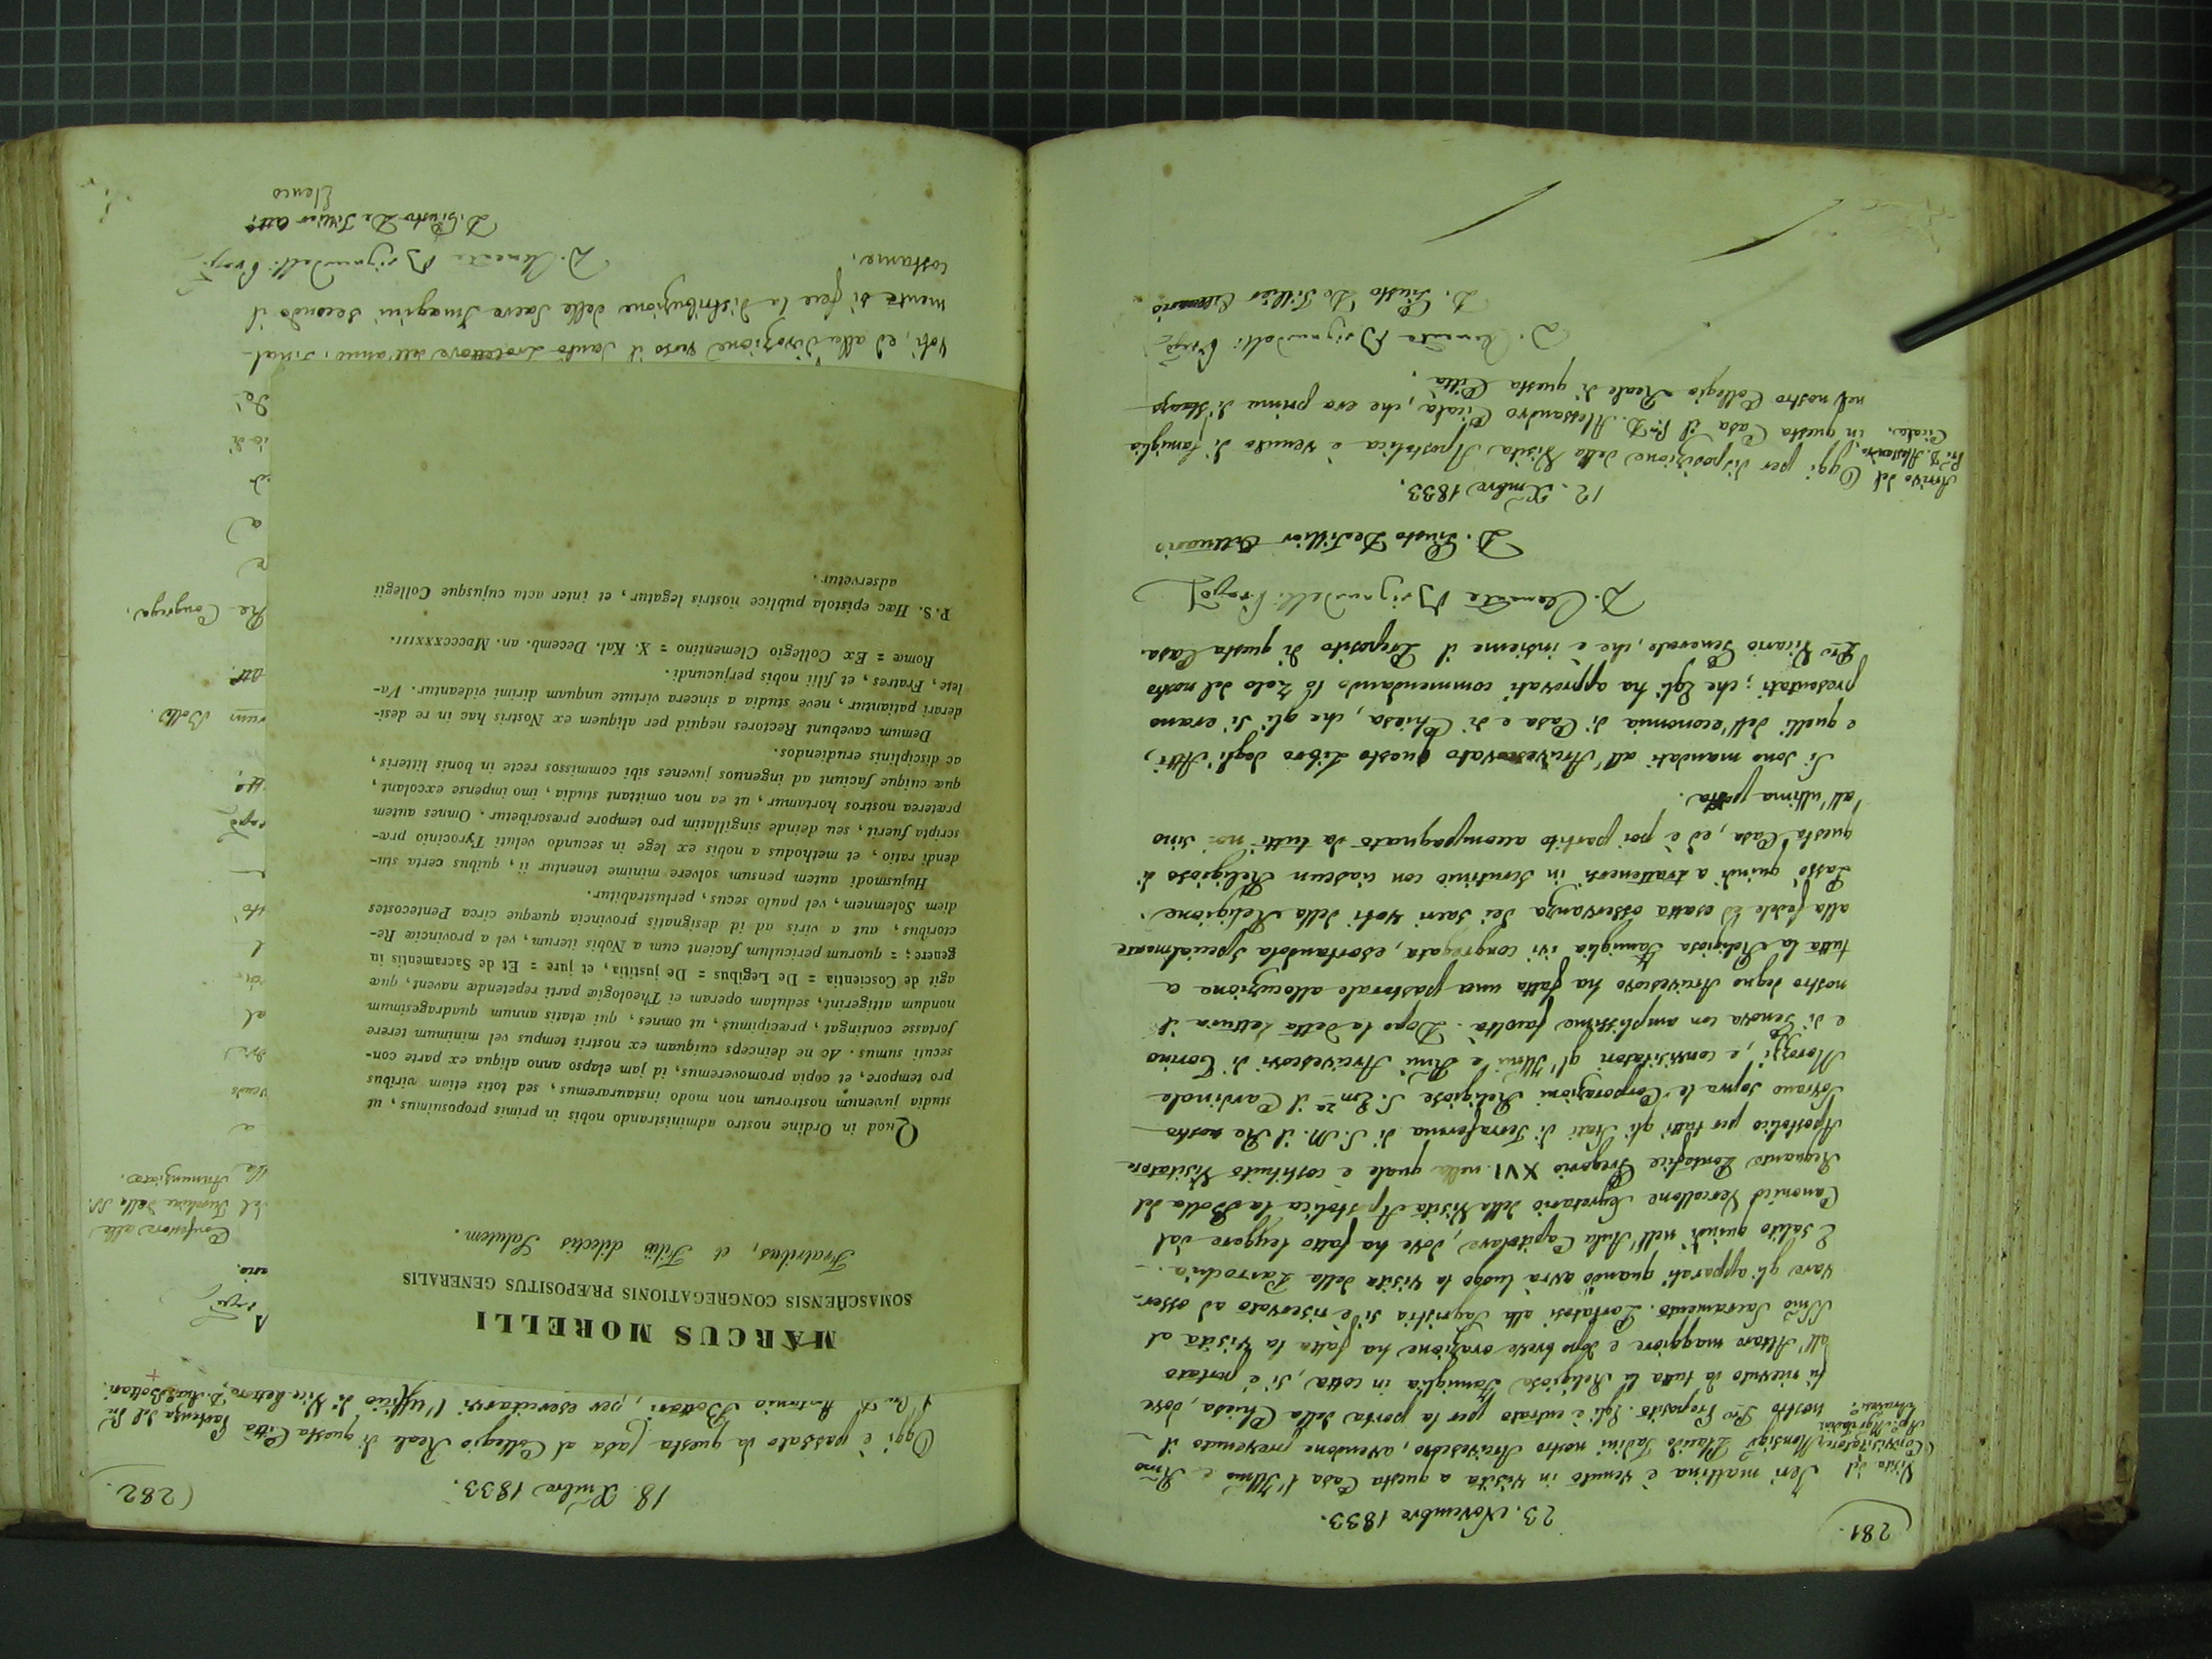 (281.
23. Novembre 1833.
Visita del
Convisitatore
Ap. Mgr Tadini
Arcivesc.
Jeri mattina è venuto in visita a questa Casa l'Illmo e Rmo
Monsigr Placido Tadini nostro Arcivescovo, avendone prevenuto il
nostro Pro Preposito. Egli è entrato per la porta della Chiesa, dove
fù ricevuto da tutta la Religiosa Famiglia in cotta, si è portato
all'Altare maggiore e dopo breve orazione ha fatta la visita al
SSmo Sacramento. Portatosi alla Sagristia si è riservato ad osser-
vare gli apparati quando avrà luogo la visita della Parrochia.
È salito quindi nell'Aula Capitolare, dove ha fatto leggere dal
Canonico Vercellone Segretario della Visita Apostolica la Bolla del
Regnante Pontefice Gregorio XVI nella quale è costituito Visitatore
Apostolico per tutti gli Stati di Terraferma di S. M. il Re nostro
Sovrano sopra le Corporazioni Religiose S. Emza il Cardinale
Morozzi, e convisitatori gl'Illmi e Rmi Arcivescovi di Torino
e di Genova con amplissime facoltà. Dopo la detta lettura il
nostro degno Arcivescovo ha fatta una pastorale allocuzione a
tutta la Religiosa Famiglia ivi congregata, esortandola specialmente
alla fedele ed esatta osservanza dei sacri voti della Religione.
Passò quindi a trattenersi in scrutinio con ciascun Religioso di
questa Casa, ed è poi partito accompagnato da tutti noi sino
all'ultima porta.
Si sono mandati all'Arcivescovato questo Libro degli Atti,
e quelli dell'economia di Casa e di Chiesa, che gli si erano
presentati; che Egli ha approvati commendando lo zelo del nostro
Pro Vicario Generale, che è insieme il Preposito di questa Casa
D. Clemente Brignardelli Prepo
D. Giusto DeTillier Attuario
12. Xmbre 1833.
Arrivo del
P. D. Alessandro
Cicala.
Oggi per disposizione della Visita Apostolica è venuto di famiglia
in questa Casa il P. D. Alessandro Cicala, che era prima di stanza
nel nostro Collegio Reale di questa Città.
D. Clemente Brignardelli Prepo
D. Giusto De Tillier Attuario
(282.
18. Xmbre 1833.
Oggi è passato da questa Casa al Collegio Reale di questa Città
Antonio Bottari, per esercitarvi l'Ufficio di Vice Rettore.
Partenza del P.
D. Anto Bottari.
MARCUS MORELLI
SOMASCHENSIS CONGREGATIONIS PRÆPOSITUS GENERALIS
Fratribus, et Filiis dilectis Salutem.
Quod in Ordine nostro administrando nobis in primis proposuimus, ut
studia juvenum nostrorum non modo instauraremus, sed totis etiam viribus
pro tempore, et copia promoveremus, id jam elapso anno aliqua ex parte con-
secuti sumus. Ac ne deinceps cuiquam ex nostris tempus vel minimum terere
fortasse contingat, præcipimus, ut omnes, qui ætatis annum quadragesimum
nondum attigerint, sedulam operam ei Theologiæ parti repetendæ navent, quæ
agit de Coscientia = De Legibus = De justitia, et jure = Et de Sacramentis in
genere; = quorum periculum facient cum a Nobis iterum, vel a provinciæ Re-
ctoribus, aut a viris ad id designatis provincia quæque circa Pentecostes
diem Solemnem, vel paulo secus, perlustrabitur.
Hujusmodi autem pensum solvere minime tenentur ii, quibus certa stu-
dendi ratio, et methodus a nobis ex lege in secundo veluti Tyrocinio præ-
scripta fuerit, seu deinde singillatim pro tempore præscribetur. Omnes autem
præterea nostros hortamur, ut ea non omittant studia, imo impense excolant,
quæ cuique faciunt ad ingenuos juvenes sibi commissos recte in bonis litteris,
ac disciplinis erudiendos.
Demum cavebunt Rectores nequid per aliquem ex Nostris hac in re desi-
derari patiantur, neve studia a sincera virtute unquam dirimi videantur. Va-
lete, Fratres, et filii nobis perjucundi.
Romæ = Ex Collegio Clementino = X. Kal. Decemb. an. MDCCCXXXIII.
P. S. Hæc epistola publice nostris legatur, et inter acta cujusque Collegii
adservetur.
Confessore alle
Annunziata.
Bollo.
Congrega.
voti, ed alla divozione verso il Santo Protettore dell'anno. Final-
mente si fece la distribuzione delle Sacre Imagini secondo il
costume.
D. Clemente Brignardelli Prepo
D. Giusto De Tillier Atto
Elenco